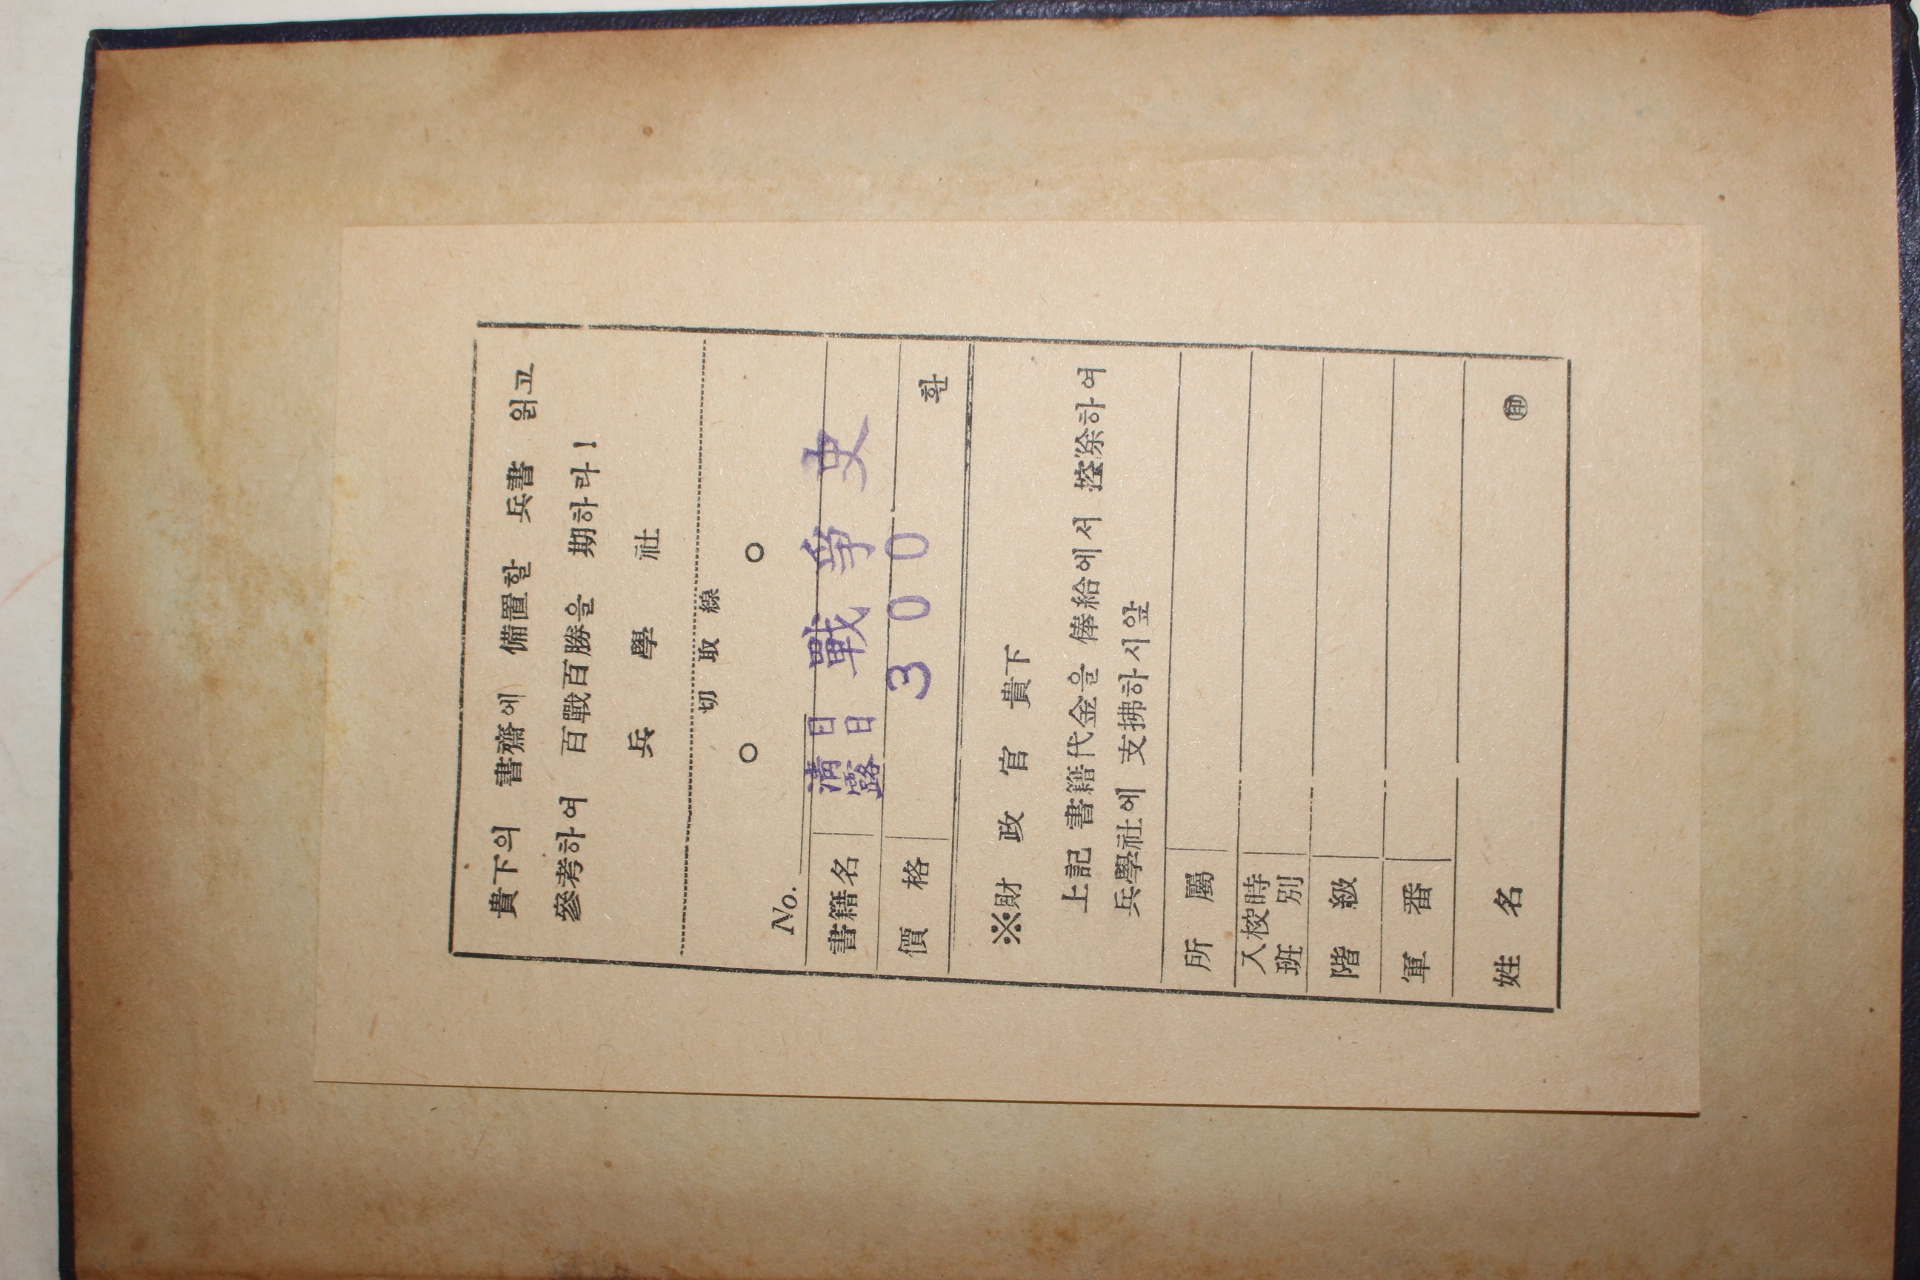 貴下의 書齋에 備置할 兵書 읽고
參考하여 百戰百勝을 期하라!
兵學社
切取線
No.
書籍名 淸日露日戰爭史
價格 300 환
※財政官 貴下
上記 書籍代金을 俸給에서 控除하여
兵學社에 支拂하시앞
所屬
入校時
班別
階級
軍番
姓名 印